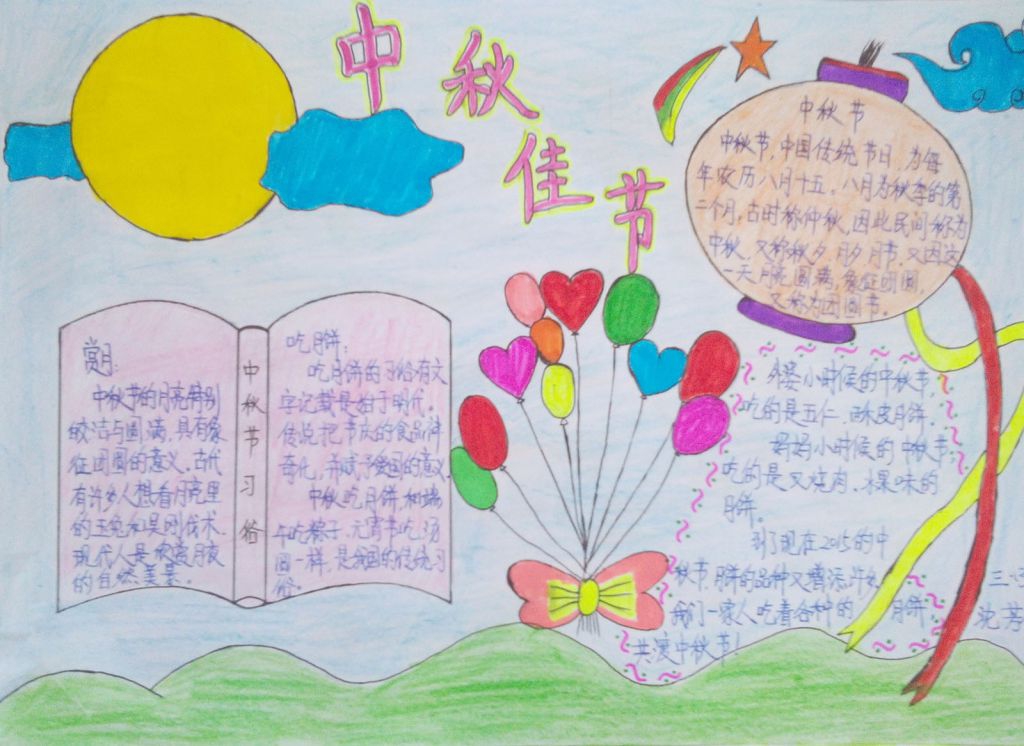 中秋佳节
中秋节
中秋节,中国传统节日,为每
年农历八月十五。八月为秋季的第
二个月,古时称仲秋,因此民间称为
中秋,又称秋夕,月夕,月节,又因这
一天月亮圆满,象征团圆,
又称为团圆节。
中秋节习俗
赏月:
中秋节的月亮特别
皎洁与圆满,具有象
征团圆的意义。古代
有许多人想看月亮里
的玉兔和吴刚伐木.
现代人是欣赏月夜
的自然美景。
吃月饼:
吃月饼的习俗有文
字记载是始于明代。
传说把节庆的食品神
奇化,并赋予爱国的意义.
中秋吃月饼,和端
午吃粽子.元宵节吃汤
圆一样,是我国的传统习
俗。
外婆小时候的中秋节,
吃的是五仁.酥皮月饼。
妈妈小时候的中秋节,
吃的是叉烧肉.水果味的
月饼。
到了现在2015的中
秋节.月饼的品种又增添许多
我们一家人吃着各种的 月饼
共渡中秋节!
沈芳